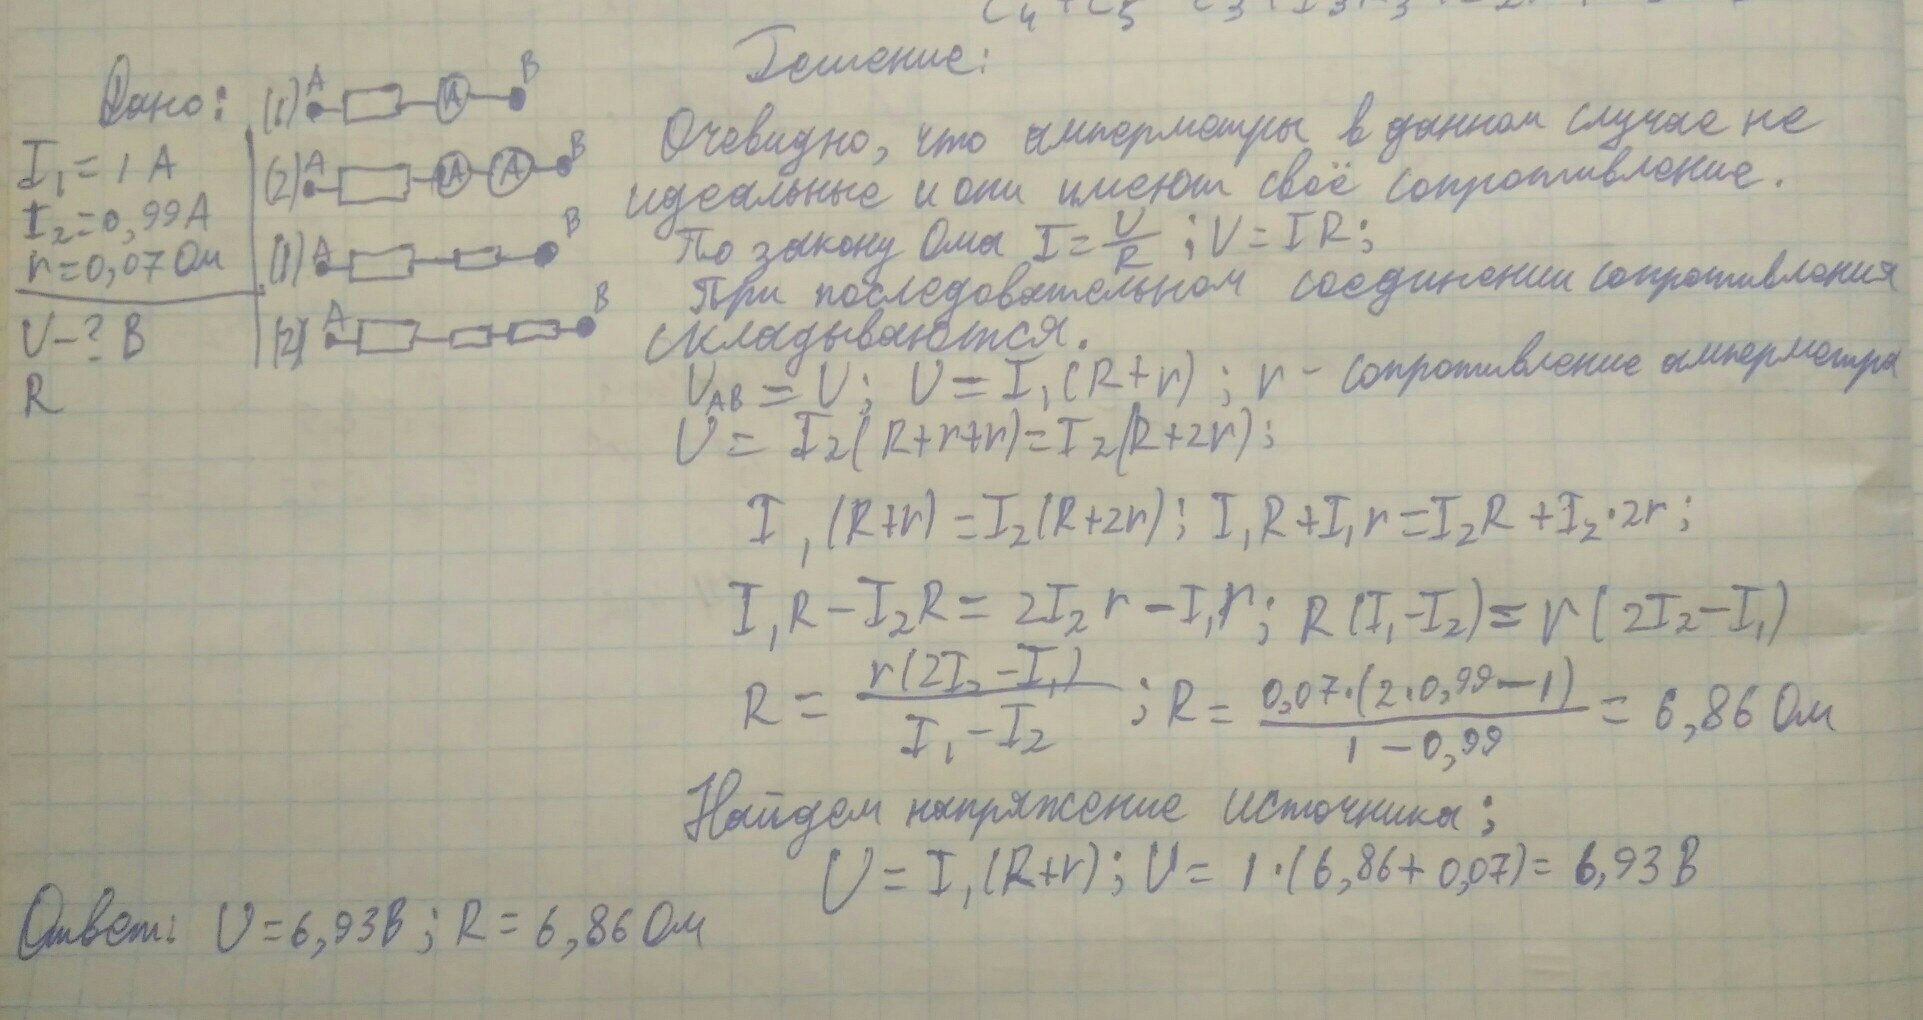 Решение:
Дано:
I₁ = 1 А
I₂ = 0,99 А
r = 0,07 Ом
U - ? В
R
(1) A A B
(2) A A A B
(1) A B
(2) A B
Очевидно, что амперметры в данном случае не
идеальные и они имеют своё сопротивление.
По закону Ома I = U/R ; U = IR;
При последовательном соединении сопротивления
складываются.
U_AB = U; U = I₁(R+r) ; r - сопротивление амперметра
U = I₂(R+r+r) = I₂(R+2r);
I₁(R+r) = I₂(R+2r); I₁R + I₁r = I₂R + I₂·2r;
I₁R - I₂R = 2I₂r - I₁r; R(I₁-I₂) = r(2I₂-I₁)
R = r(2I₂-I₁)/(I₁-I₂) ; R = 0,07·(2·0,99-1)/(1-0,99) = 6,86 Ом
Найдем напряжение источника;
U = I₁(R+r); U = 1·(6,86+0,07) = 6,93 В
Ответ: U = 6,93В; R = 6,86 Ом